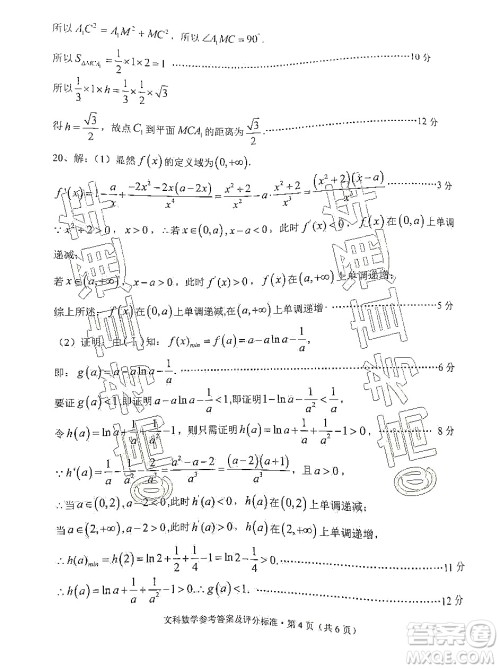 所以 A₁C² = A₁M² + MC²，所以 ∠A₁MC = 90°.
所以 S△MCA₁ = 1/2 × 1 × 2 = 1 ………………10 分
所以 1/3 × 1 × h = 1/2 × 1/3 × √3
得 h = √3/2，故点 C₁ 到平面 MCA₁ 的距离为 √3/2. ………………12 分
20、解：（1）显然 f(x) 的定义域为 (0,+∞).
∵ x²+2>0，x>0，∴若 x∈(0,a)，x-a<0，此时 f'(x)<0，f(x) 在 (0,a) 上单调
递减；
若 x∈(a,+∞)，x-a>0，此时 f'(x)>0，f(x) 在 (a,+∞) 上单调递增；
综上所述：f(x) 在 (0,a) 上单调递减，在 (a,+∞) 上单调递增 ………………5 分
（2）证明：由（1）知：f(x)min = f(a) = a - a ln a - 1/a ………………6 分
即：g(a) = a - a ln a - 1/a
要证 g(a)<1，即证明 a - a ln a - 1/a < 1，即证明 1 - ln a - 1/a² < 1/a
令 h(a) = ln a + 1/a + 1/a² - 1，则只需证明 h(a) = ln a + 1/a + 1/a² - 1 > 0，…… 8 分
∵ h'(a) = 1/a - 1/a² - 2/a³ = (a²-a-2)/a³ = (a-2)(a+1)/a³，且 a>0
∴当 a∈(0,2)，a-2<0，此时 h'(a)<0，h(a) 在 (0,2) 上单调递减；
当 a∈(2,+∞)，a-2>0，此时 h'(a)>0，h(a) 在 (2,+∞) 上单调递增，
∴ h(a)min = h(2) = ln 2 + 1/2 + 1/4 - 1 = ln 2 - 1/4 > 0 ………………11 分
∴ h(a) = ln a + 1/a + 1/a² - 1 > 0. ∴ g(a)<1. ………………12 分
文科数学参考答案及评分标准·第 4 页（共 6 页）
@高考直通车
@高考直通车